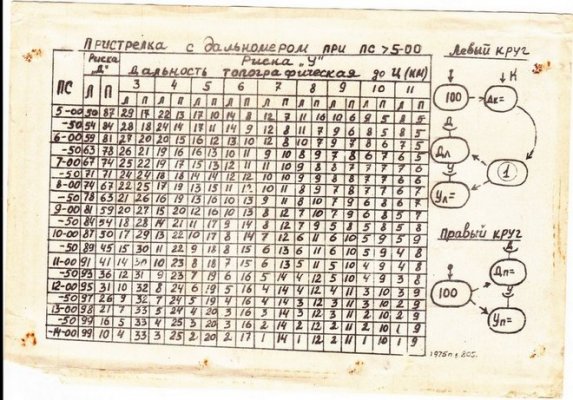 Пристрелка с дальномером при ПС >5-00
Левый круг
ПС
Риска „Д"
Риска „У"
дальность топографическая до Ц (км)
3 4 5 6 7 8 9 10 11
Л П Л П Л П Л П Л П Л П Л П Л П Л П Л П
5-00 50 87 29 17 22 13 17 10 14 8 12 7 11 16 10 6 9 5 8 5
-50 54 84 28 18 24 14 17 11 14 9 12 8 11 7 9 6 8 5 8 5
6-00 59 81 27 20 20 15 16 12 13 10 12 8 10 7 9 7 8 6 7 5
-50 63 78 26 21 19 16 16 13 10 11 9 10 8 9 7 8 6 7 6 5
7-00 67 74 25 22 19 17 15 13 12 11 11 10 9 8 8 7 7 7 7 6
-50 71 71 24 24 18 18 14 14 12 12 10 10 9 9 8 8 7 7 7 6
8-00 74 67 22 25 17 19 13 15 11 12 10 11 8 9 7 8 7 7 6 7
-50 78 63 21 26 16 19 13 16 10 13 9 11 8 10 7 9 6 8 6 7
9-00 81 59 20 27 15 20 12 16 10 13 8 12 7 10 7 9 6 8 5 7
-50 84 54 18 28 14 21 11 17 9 14 8 12 7 9 5 8 5 8 5 8
10-00 87 50 17 29 13 22 10 17 8 14 7 12 6 11 6 10 5 9 5 9
-50 89 45 15 30 11 22 9 18 8 15 6 13 6 11 6 10 5 9 4 8
11-00 91 41 14 30 10 23 8 18 7 15 6 13 5 11 5 10 4 9 4 8
-50 93 36 12 31 9 23 7 19 6 16 5 14 4 12 5 10 4 9 3 8
12-00 95 31 10 32 8 24 6 19 5 16 4 14 4 12 4 10 3 10 3 9
-50 97 26 9 32 7 24 5 19 4 16 4 14 3 12 3 11 3 10 2 9
13-00 98 21 7 33 5 24 4 20 3 16 3 14 3 12 3 11 2 10 2 9
-50 99 16 5 33 4 25 3 20 3 16 2 14 2 12 2 11 2 10 1 9
14-00 99 10 4 33 3 25 2 20 2 17 1 14 1 12 2 11 1 10 1 9
К
100
Дк=
Д
Дл
1
У
Ул=
Правый круг
Д
Дп=
100
У
Уп=